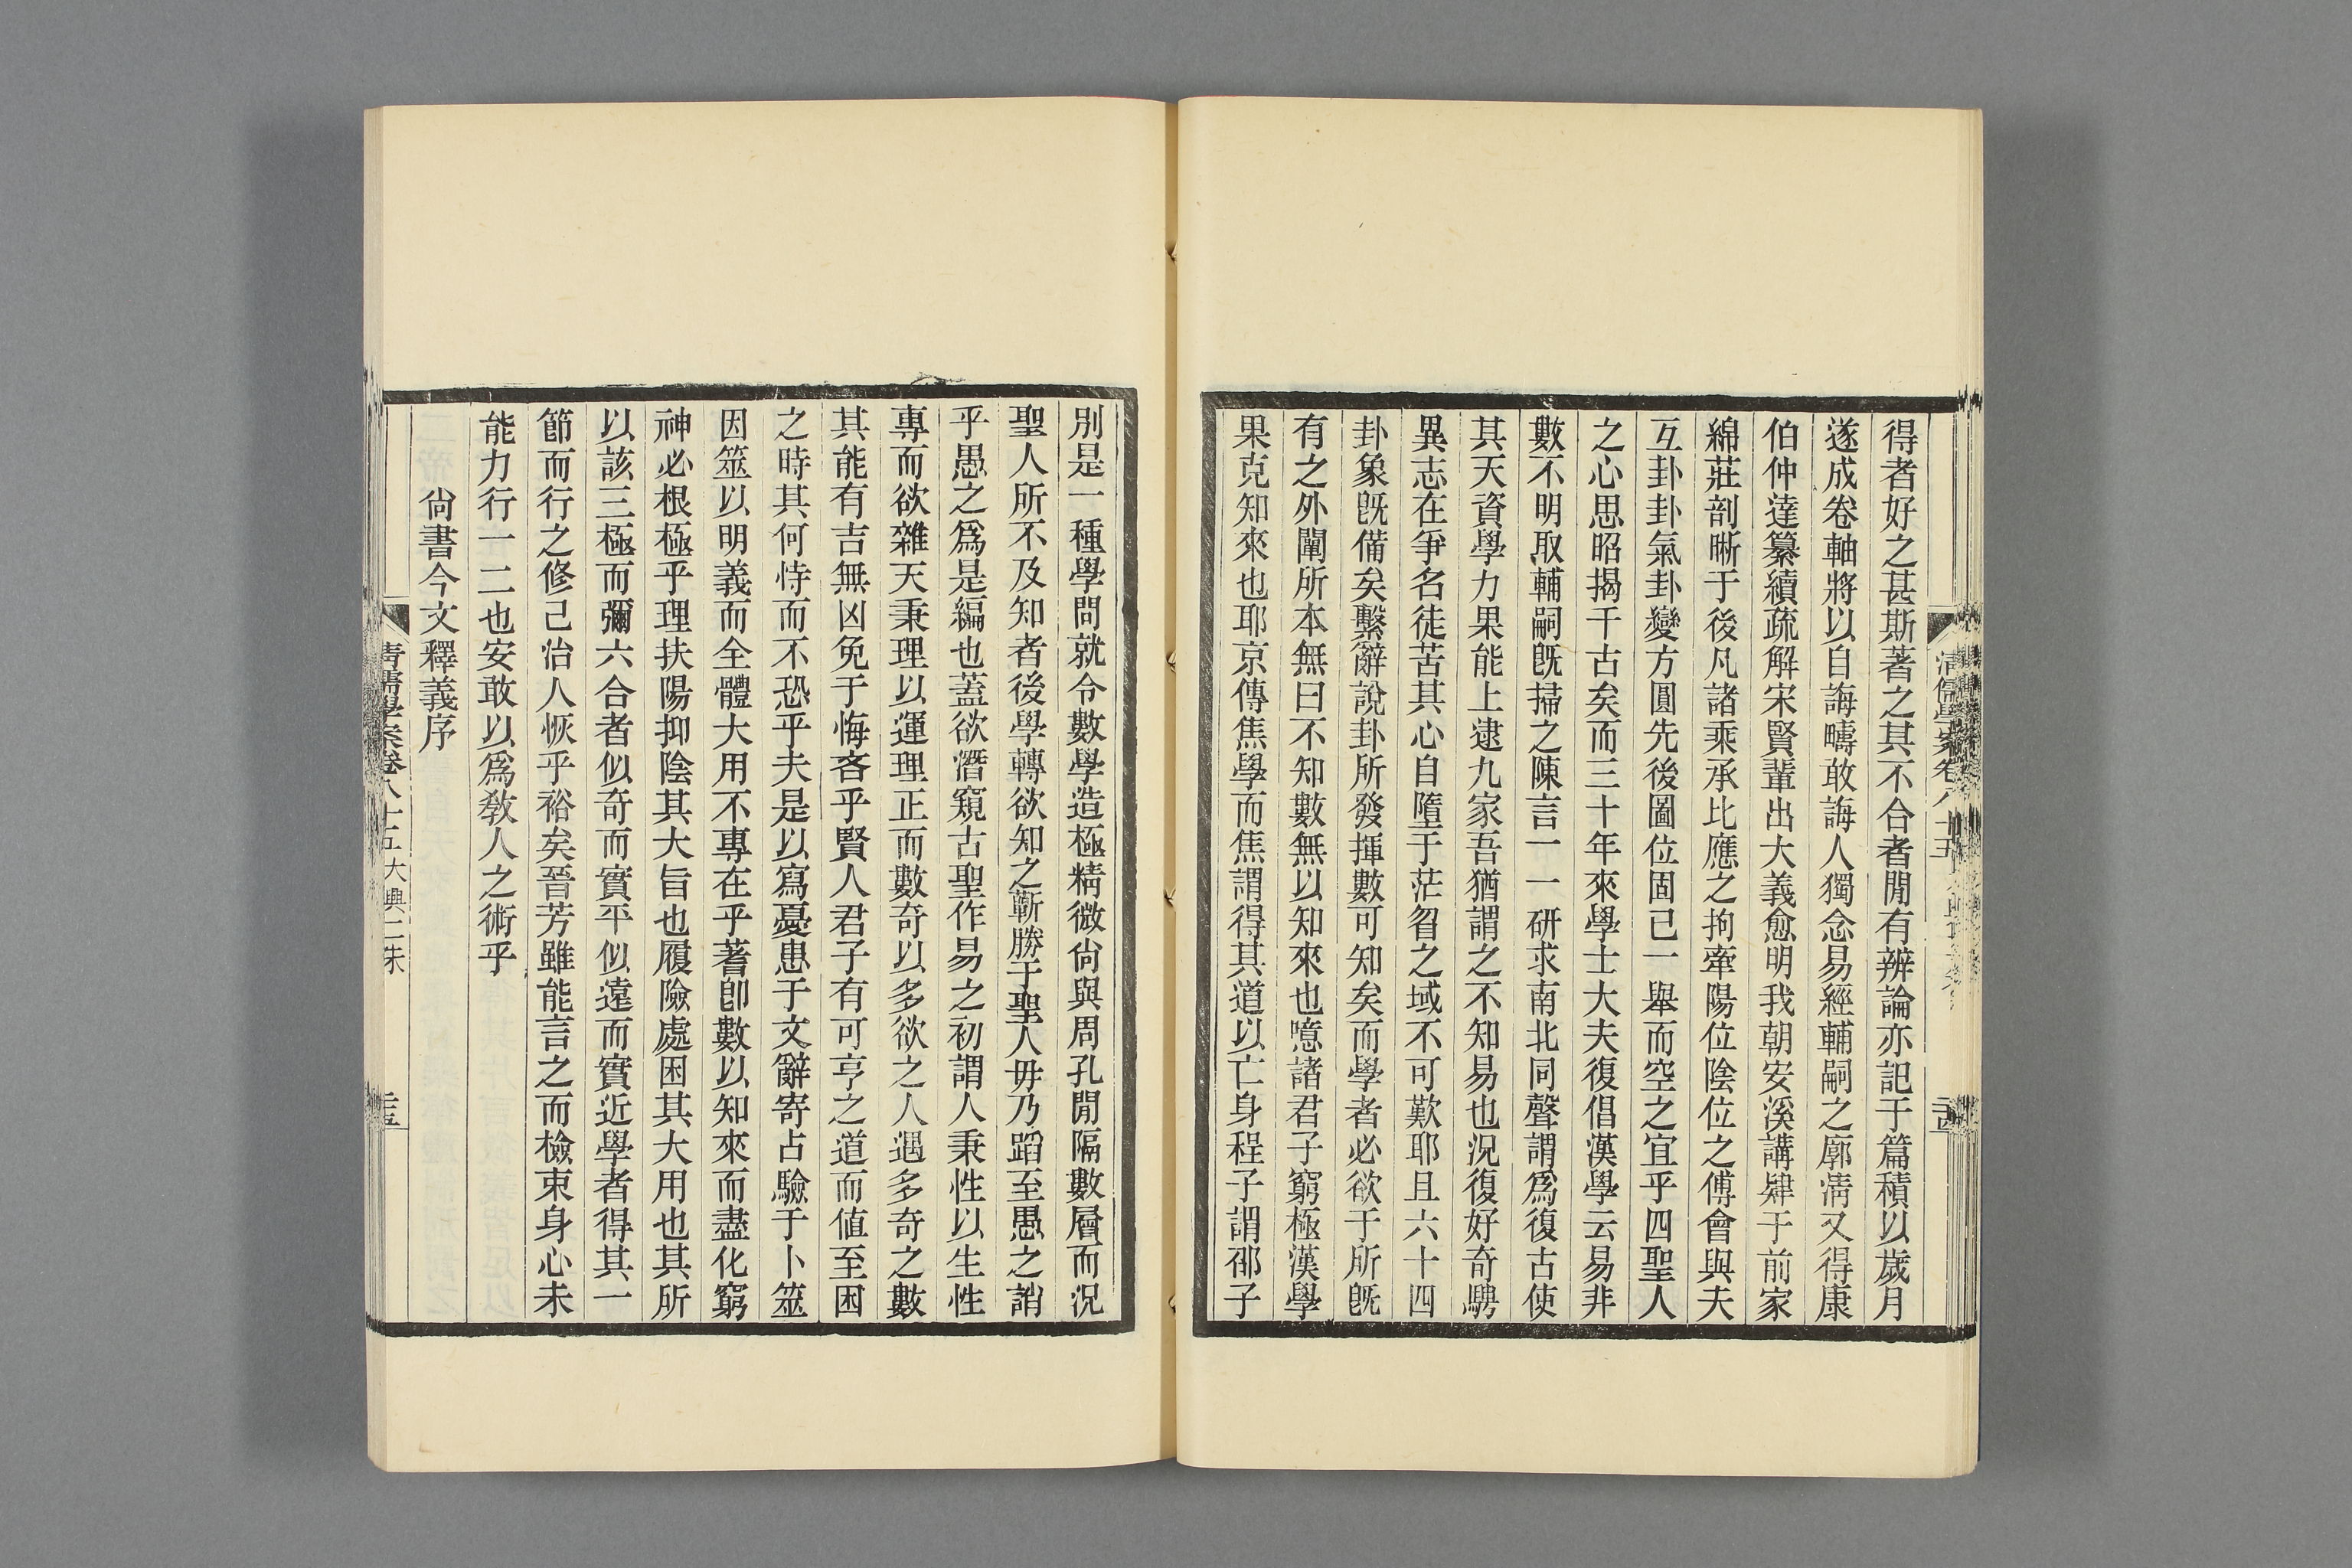 得者好之甚斯著之其不合者閒有辨論亦記于篇積以歲月
遂成卷軸將以自誨疇敢誨人獨念易經輔嗣之廓淸又得康
伯仲達纂續疏解宋賢輩出大義愈明我朝安溪講肄于前家
綿莊剖晰于後凡諸乘承比應之拘牽陽位陰位之傅會與夫
互卦卦氣卦變方圓先後圖位固已一舉而空之宜乎四聖人
之心思昭揭千古矣而三十年來學士大夫復倡漢學云易非
數不明取輔嗣旣掃之陳言一一硏求南北同聲謂爲復古使
其天資學力果能上逮九家吾猶謂之不知易也況復好奇騁
異志在爭名徒苦其心自墮于茫曶之域不可歎耶且六十四
卦象旣備矣繫辭說卦所發揮數可知矣而學者必欲于所旣
有之外闡所本無曰不知數無以知來也噫諸君子窮極漢學
果克知來也耶京傳焦學而焦謂得其道以亡身程子謂邵子
別是一種學問就令數學造極精微尙與周孔閒隔數層而況
聖人所不及知者後學轉欲知之蘄勝于聖人毋乃蹈至愚之誚
乎愚之爲是編也蓋欲潛窺古聖作易之初謂人秉性以生性
專而欲雜天秉理以運理正而數奇以多欲之人遇多奇之數
其能有吉無凶免于悔吝乎賢人君子有可亨之道而値至困
之時其何恃而不恐乎夫是以寫憂患于文辭寄占驗于卜筮
因筮以明義而全體大用不專在乎蓍卽數以知來而盡化窮
神必根極乎理扶陽抑陰其大旨也履險處困其大用也其所
以該三極而彌六合者似奇而實平似遠而實近學者得其一
節而行之修己治人恢乎裕矣晉芳雖能言之而檢束身心未
能力行一二也安敢以爲敎人之術乎
尙書今文釋義序
淸儒學案卷八十五 大興二朱